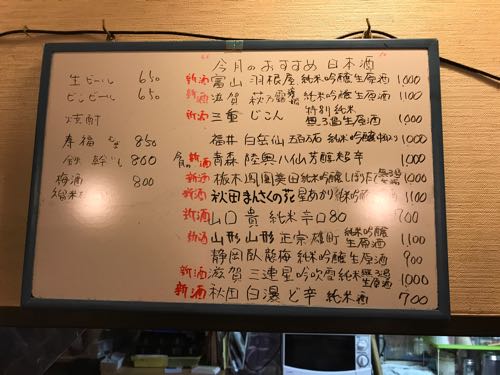 今月のおすすめ 日本酒
生ビール 650
ビンビール 650
焼酎
寿福 むぎ 850
鉄幹 いも 800
梅酒 800
新酒 富山 羽根屋 純米吟醸生原酒 1,000
新酒 滋賀 萩乃露 純米吟醸生原酒 1,100
新酒 三重 じこん 特別純米 無ろ過生原酒 1,000
福井 白岳仙 五百万石 純米吟醸中取り 1,000
新酒 青森 陸奥八仙 芳醸超辛 1,000
新酒 栃木 鳳凰美田 純米吟醸しぼりたて 1,000
新酒 秋田 まんさくの花 星あかり 1,100
新酒 山口 貴 純米辛口80 700
新酒 山形 山形正宗 雄町 純米吟醸 生原酒 1,100
静岡 臥龍梅 純米吟醸生原酒 900
新酒 滋賀 三連星 吟吹雪 純米無ろ過生原酒 1,000
新酒 秋田 白瀑 ど辛 純米酒 700